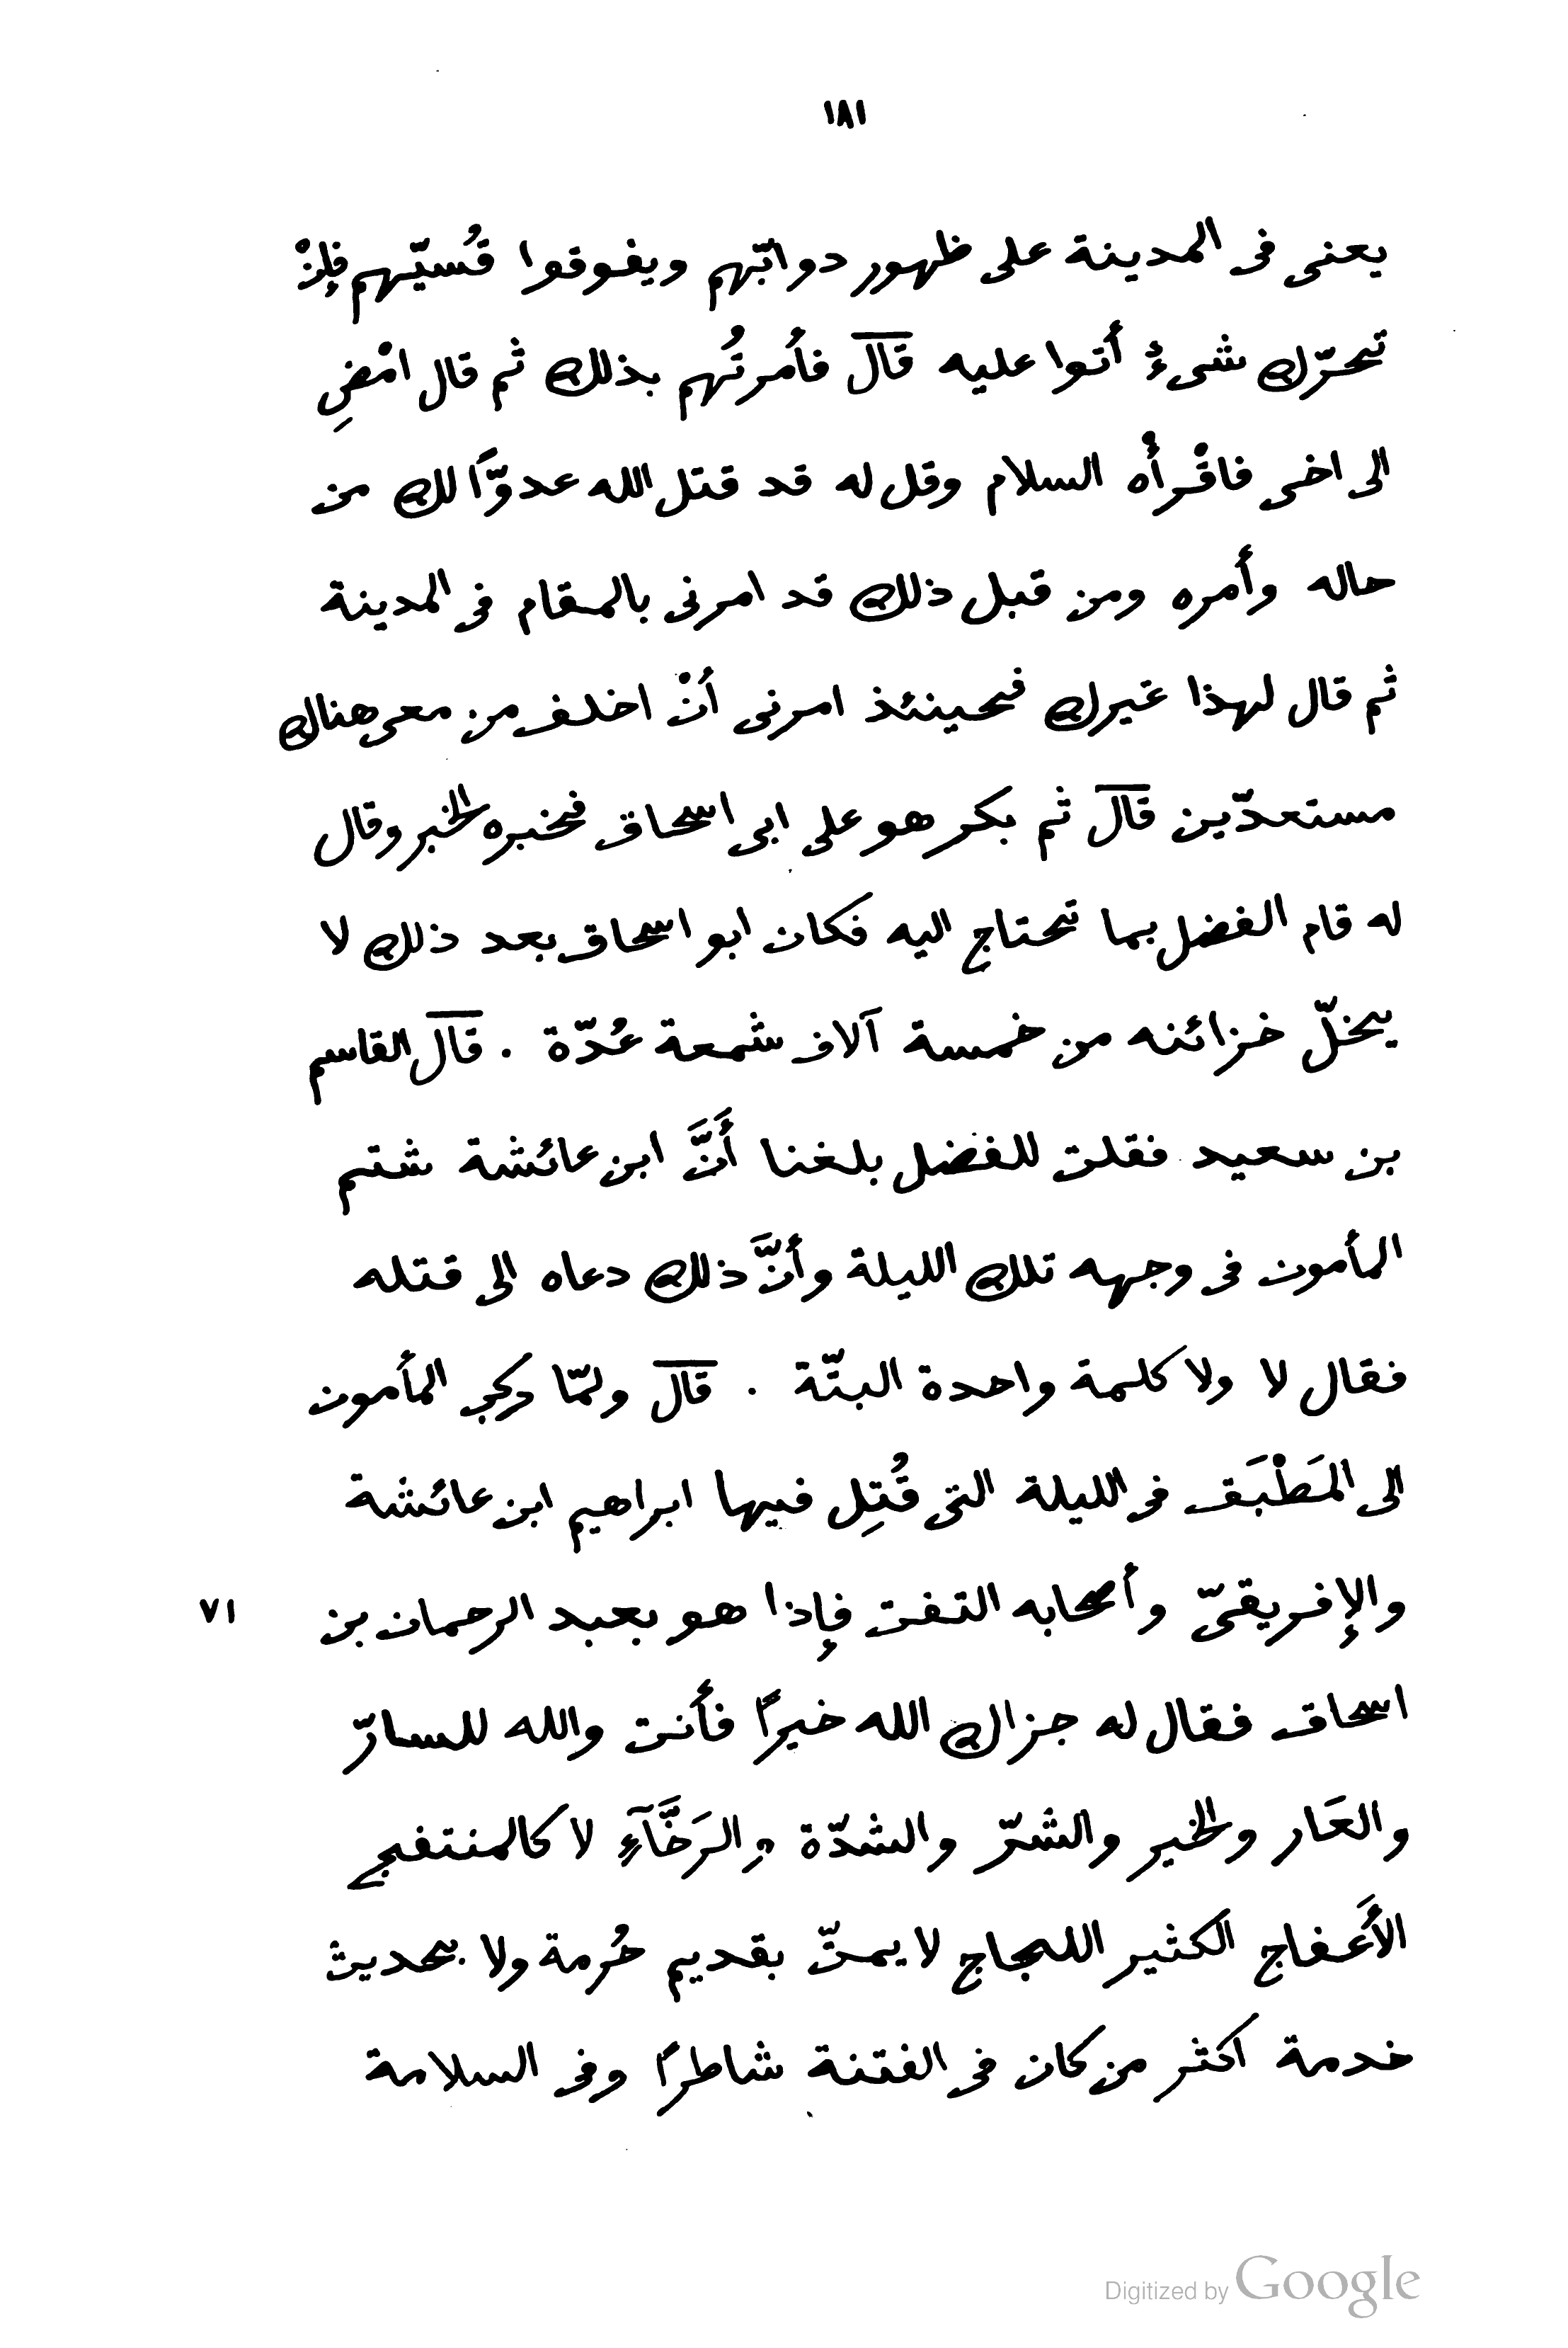 ١٨١
يعنى فى المدينة على ظهور دوابّهم ويفوقوا قُسيّهم فإنْ
تحرّك شىءٌ أتوا عليه قال فأمرتُهم بذلك ثم قال امْضِ
الى اخى فاقْرأْه السلام وقل له قد قتل الله عدوًّا لك من
حاله وأمره ومن قبل ذلك قد امرنى بالمقام فى المدينة
ثم قال لهذا غيرك فحينئذ امرنى أنْ اخلف من معى هناك
مستعدّين قال ثم بكر هو على ابى اسحاق فخبره الخبر وقال
له قام الفضل بما تحتاج اليه فكان ابو اسحاق بعد ذلك لا
يخلّ خزائنه من خمسة آلاف شمعة عُدّة . قال القاسم
بن سعيد فقلت للفضل بلغنا أَنَّ ابن عائشة شتم
المأمون فى وجهه تلك الليلة وأنَّ ذلك دعاه الى قتله
فقال لا ولا كلمة واحدة البتّة . قال ولمّا ركب المأمون
الى المَطْبَق فى الليلة التى قُتِل فيها ابراهيم ابن عائشة
والإفريقىّ وأصحابه التفت فإذا هو بعبد الرحمان بن ٧١
اسحاق فقال له جزاك الله خيرًا فأنت والله للسارّ
والعَار والخير والشرّ والشدّة والرَخَّآءِ لا كالمنتفج
الأَعفاج الكثير اللجاج لا يمتّ بقديم حُرمة ولا بحديث
خدمة اكثر من كان فى الفتنة شاطرًا وفى السلامة
Digitized by Google